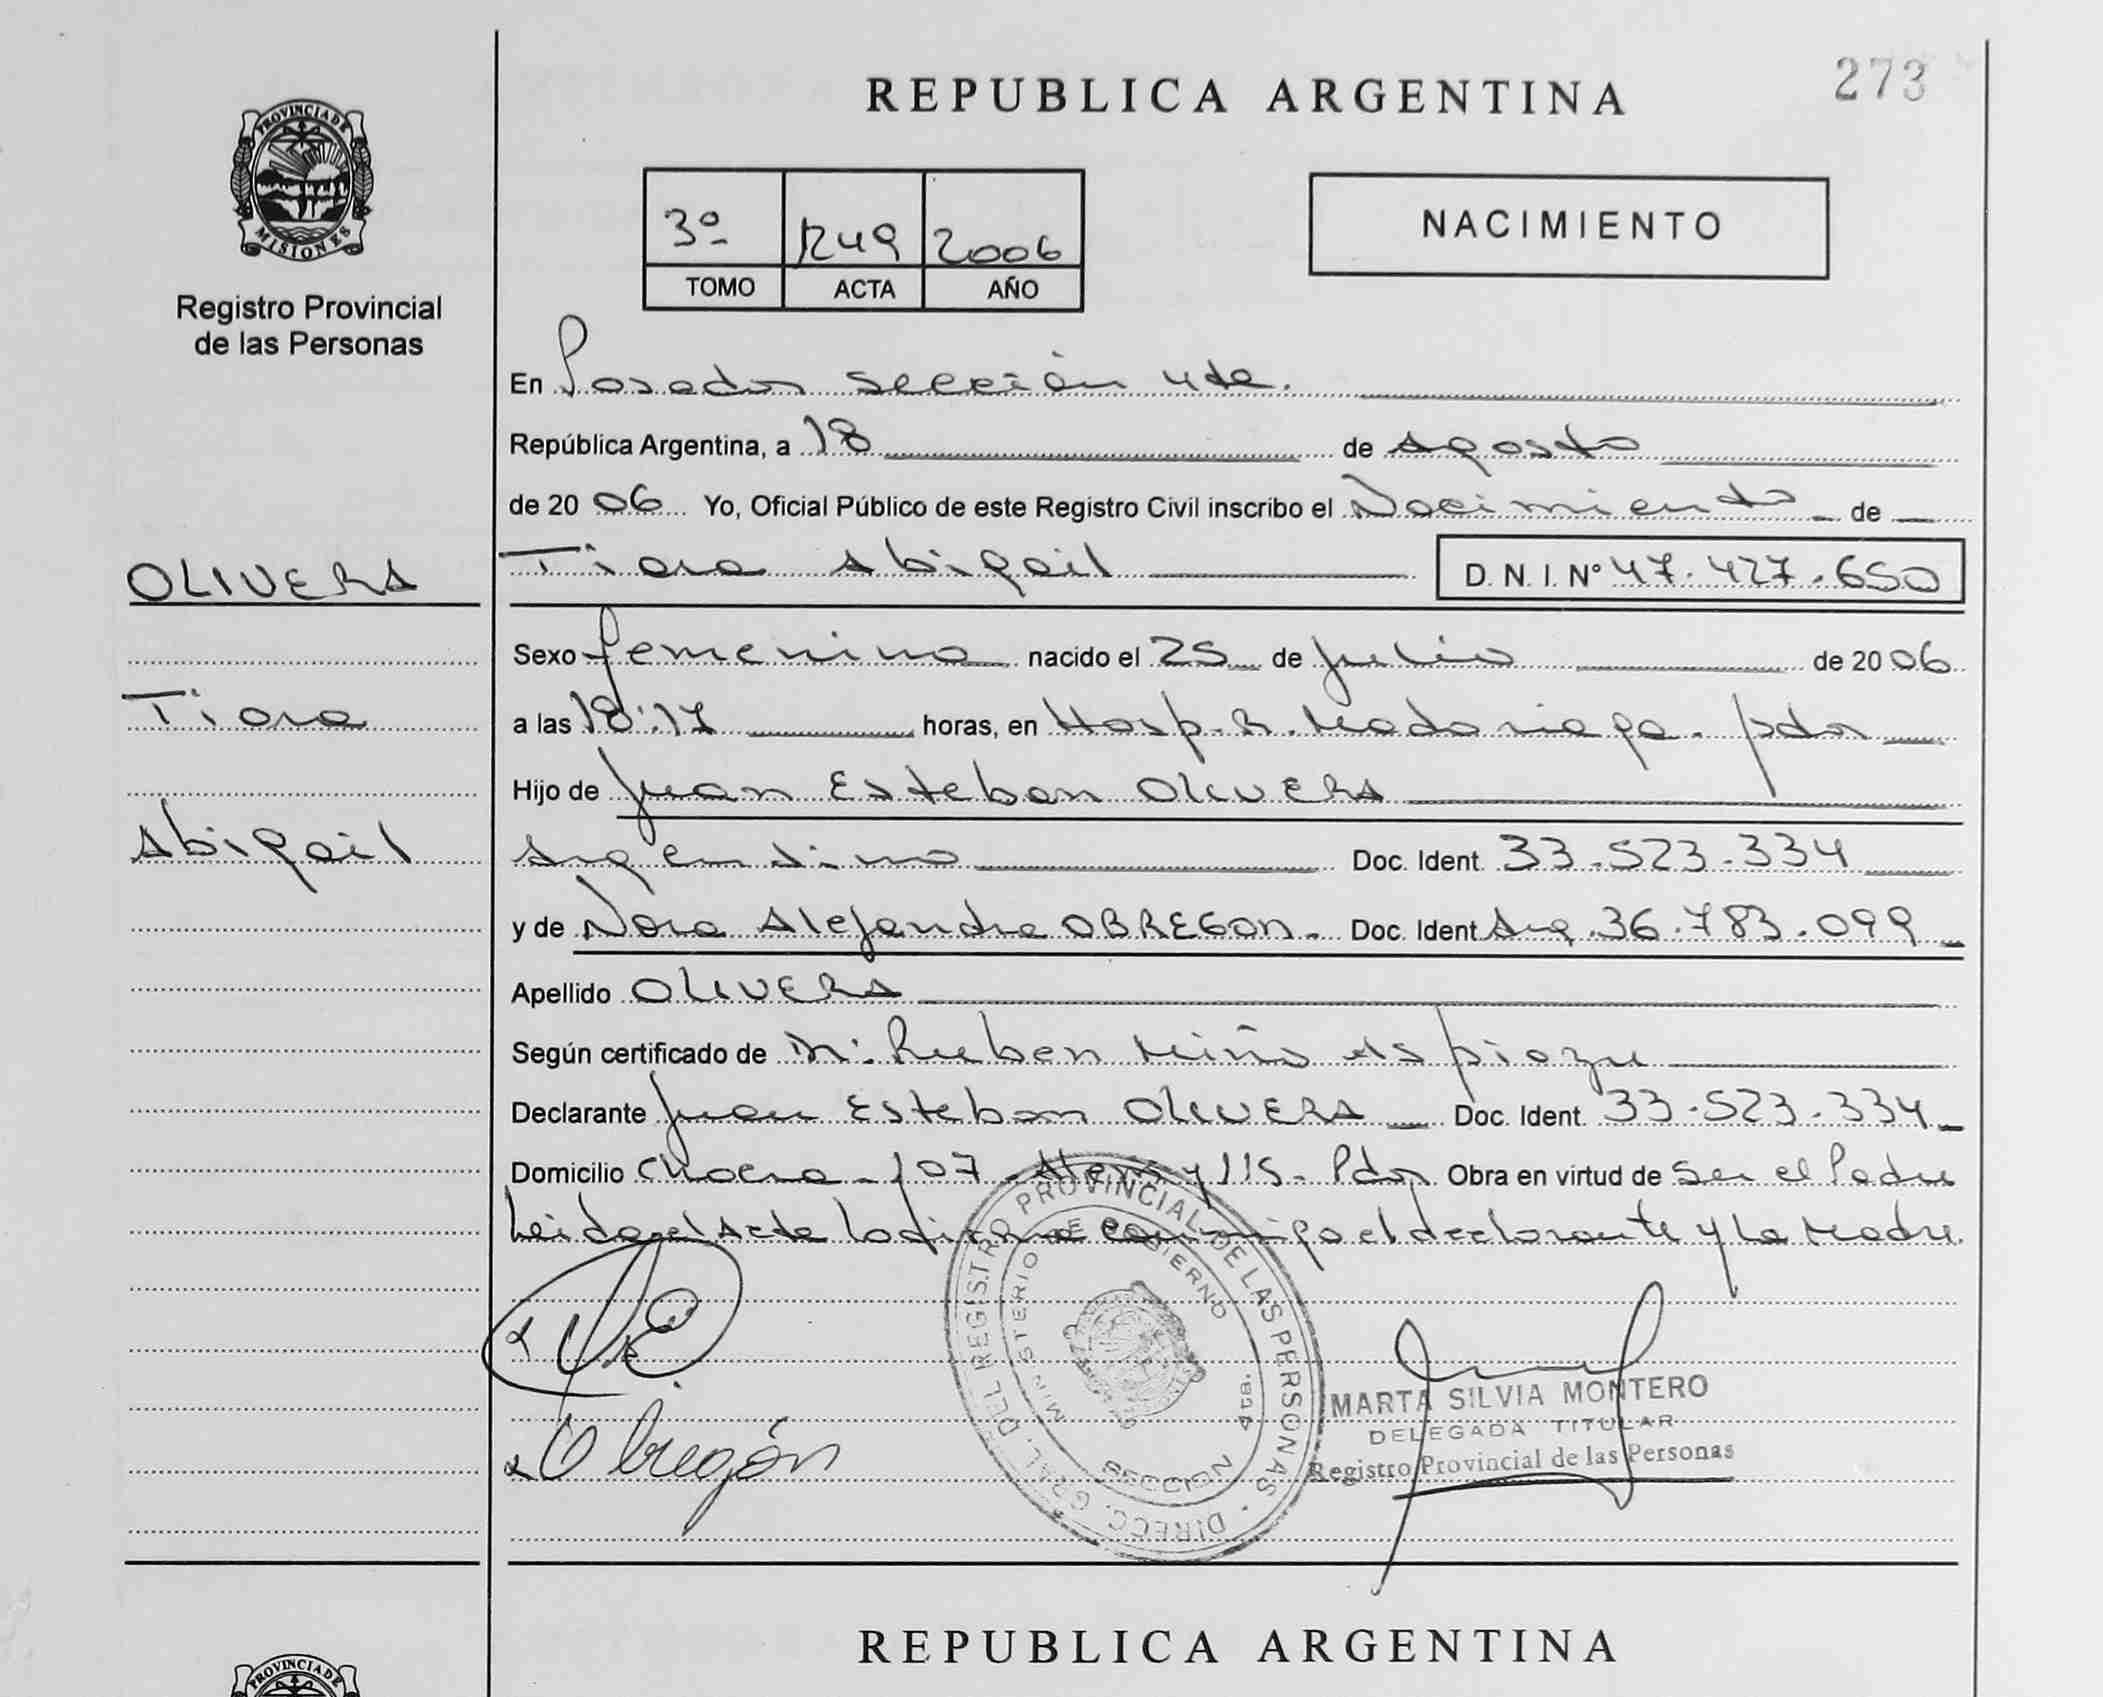 REPUBLICA ARGENTINA
273
PROVINCIA DE
MISIONES
Registro Provincial
de las Personas
3º 1249 2006
TOMO ACTA AÑO
NACIMIENTO
En Posadas sección 4ta.
República Argentina, a 18 de agosto
de 2006 Yo, Oficial Público de este Registro Civil inscribo el Nacimiento de
OLIVERA
Tiara Abigail D.N.I. Nº 47.427.650
Sexo femenino nacido el 25 de julio de 2006
Tiara
a las 18:17 horas, en Hosp. R. Madariaga. pdas
Hijo de Juan Esteban OLIVERA
Abigail
Argentino Doc. Ident. 33.523.334
y de Nora Alejandra OBREGON. Doc. Ident Arg. 36.783.099
Apellido OLIVERA
Según certificado de Ruben Miño
Declarante Juan Esteban OLIVERA Doc. Ident. 33.523.334
Domicilio Chacra 107 - Alem y 115 - Pdas Obra en virtud de Ser el Padre
Leida el Acta la firma conmigo el declarante y la Madre.
DIRECC. GRAL. DEL REGISTRO PROVINCIAL DE LAS PERSONAS
MINISTERIO DE GOBIERNO
SECCION 4ta.
Obregón
MARTA SILVIA MONTERO
DELEGADA TITULAR
Registro Provincial de las Personas
REPUBLICA ARGENTINA
PROVINCIA DE